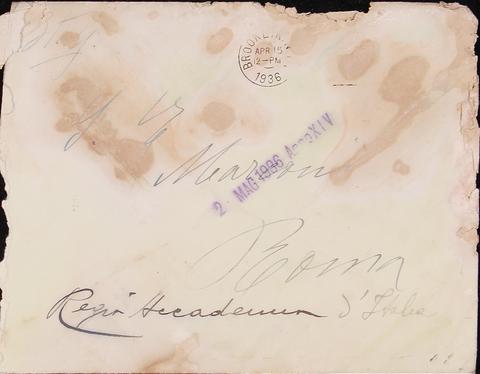 BROOKLYN
APR 15
12-PM
1936
Marconi
2- MAG 1936 Anno XIV
Roma
Regia Accademia d'Italia